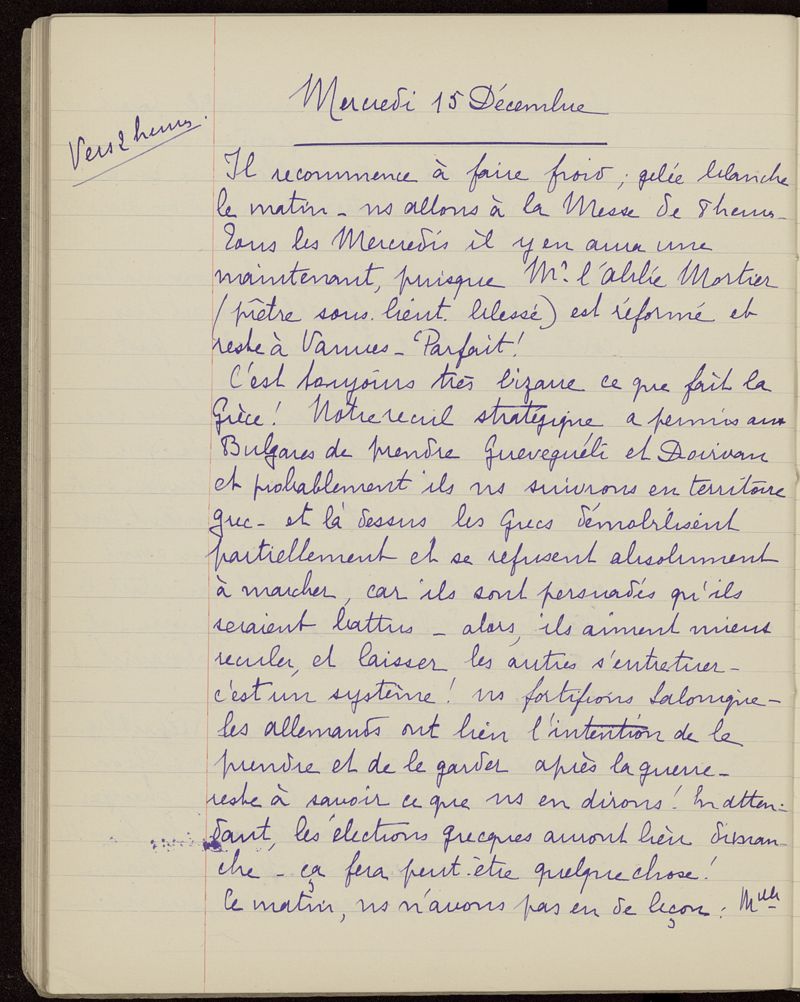 Mercredi 15 Décembre
Vers 2 heures.
Il recommence à faire froid ; gelée blanche
le matin - ns allons à la Messe de 7 heures -
Tous les Mercredis il y en aura une
maintenant, puisque Mr. l'abbé Mortier
(prêtre sous. lieut. blessé) est réformé et
reste à Vannes - Parfait !
C'est toujours très bizarre ce que fait la
Grèce ! Notre recul stratégique a permis aux
Bulgares de prendre Guevguéli et Doirvan
et probablement ils ns suivrons en territoire
grec - et là dessus les Grecs démobilisent
partiellement et se refusent absolument
à marcher, car ils sont persuadés qu'ils
seraient battus - alors, ils aiment mieux
reculer, et laisser les autres s'entretuer -
c'est un système ! ns fortifions Salonique -
les allemands ont bien l'intention de le
prendre et de le garder après la guerre -
reste à savoir ce que ns en dirons ! En atten-
dant, les élections grecques auront lieu diman-
che - ça fera peut-être quelque chose !
Ce matin, ns n'avons pas eu de leçon : Melle